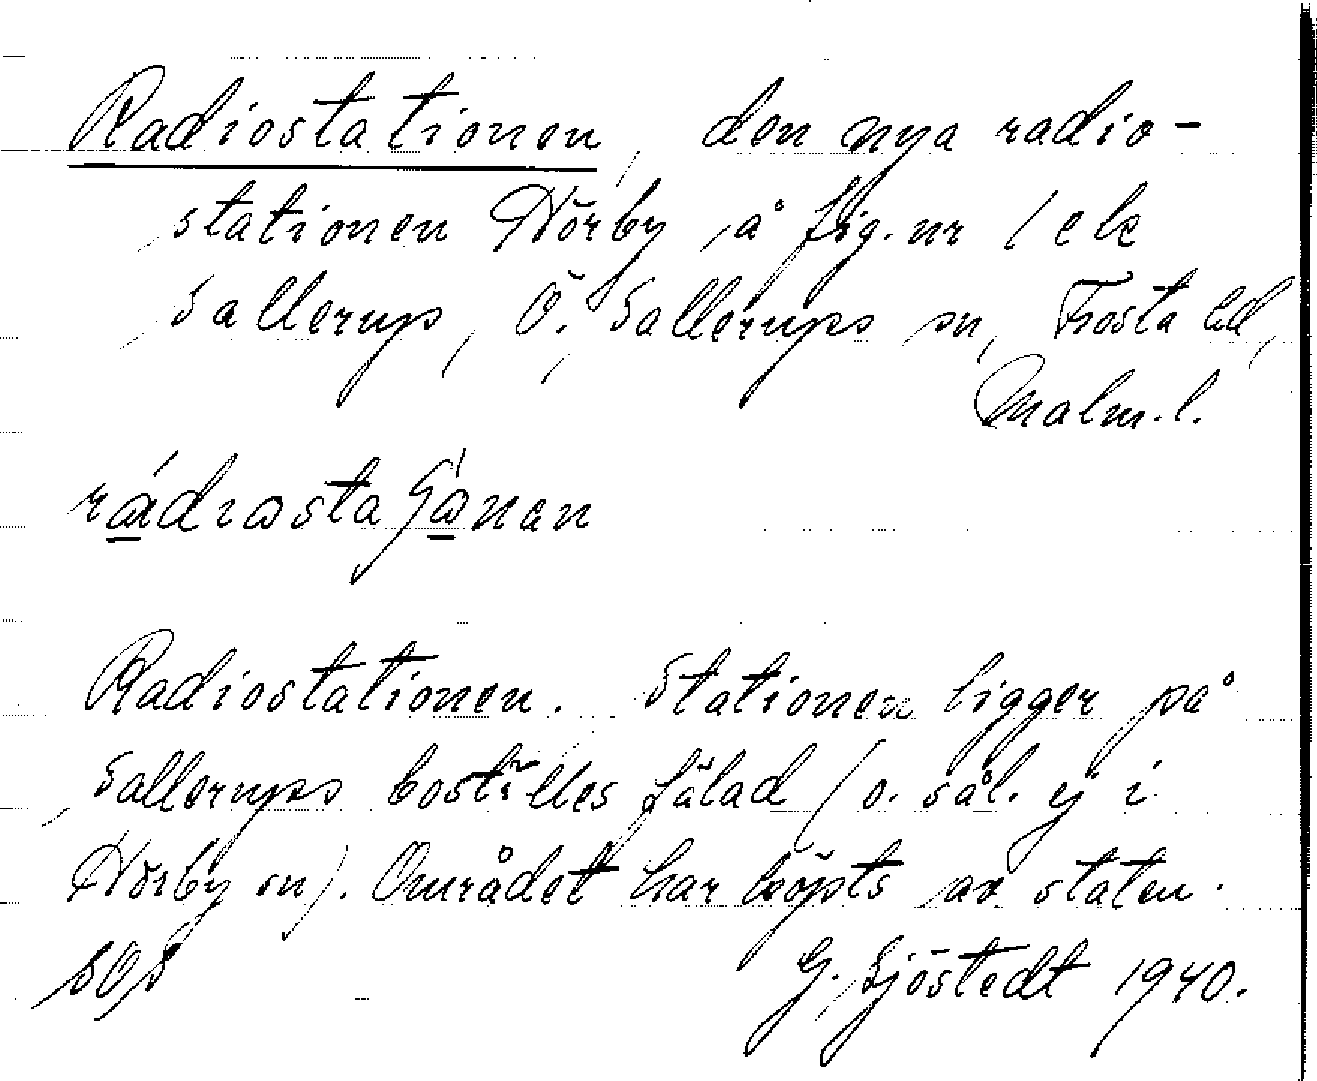 Radiostationen, den nya radio-
stationen Hörby å fig. nr 1 ek
Sallerup, Ö. Sallerups sn, Frosta hd,
Malm. l.
Radiostationen. Stationen ligger på
Sallerups boställes fälad (o. sål. ej i
Hörby sn). Området har köpts av staten.
SOS
G. Sjöstedt 1940.